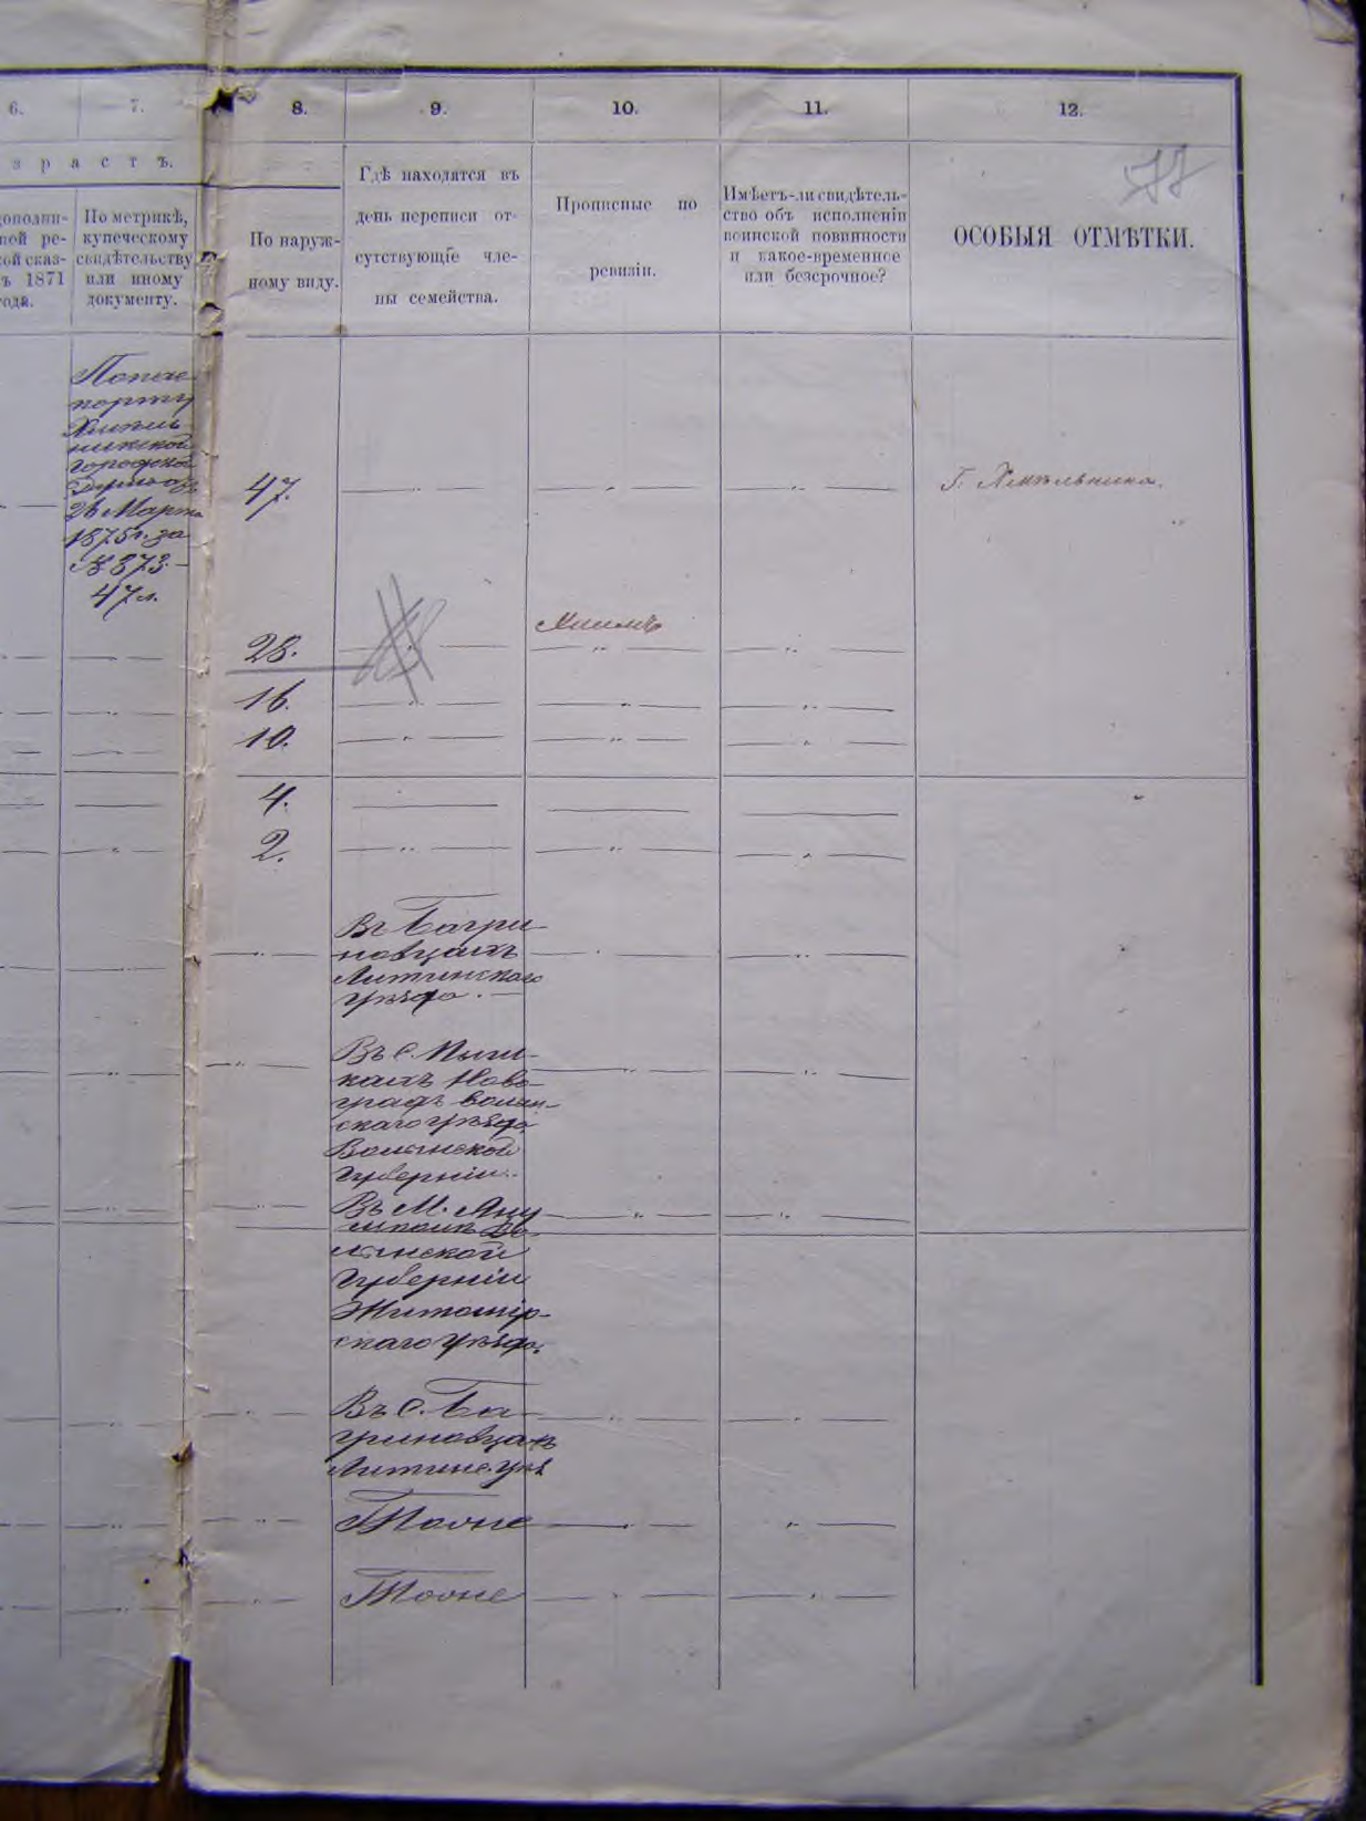 6.
7.
8.
9.
10.
11.
12.
з р а с т ъ.
дополни-
ной ре-
кой сказ-
ъ 1871
года.
По метрикѣ,
купеческому
свидѣтельству
или иному
документу.
По наруж-
ному виду.
Гдѣ находятся въ
день переписи от-
сутствующіе чле-
ны семейства.
Прописные по
ревизіи.
Имѣетъ-ли свидѣтель-
ство объ исполненіи
воинской повинности
и какое-временное
или безсрочное?
ОСОБЫЯ ОТМѢТКИ.
порту
Хмѣль
никской
городской
Думы отъ
26 Марта
1875 г. за
№ 373.
47 л.
47.
Г. Хмѣльника.
28.
16.
10.
4.
2.
Въ Багри
новцахъ
Литинскаго
уѣзда.
Въ с.
Ново
градъ волын-
скаго уѣзда
Волынской
губерніи.
Въ М. Яну
шполѣ Во
лынской
Губерніи
Житомір-
скаго уѣзда.
Въ с. Ба-
гриновцахъ
Литинс. уѣз
Тооже
Тооже